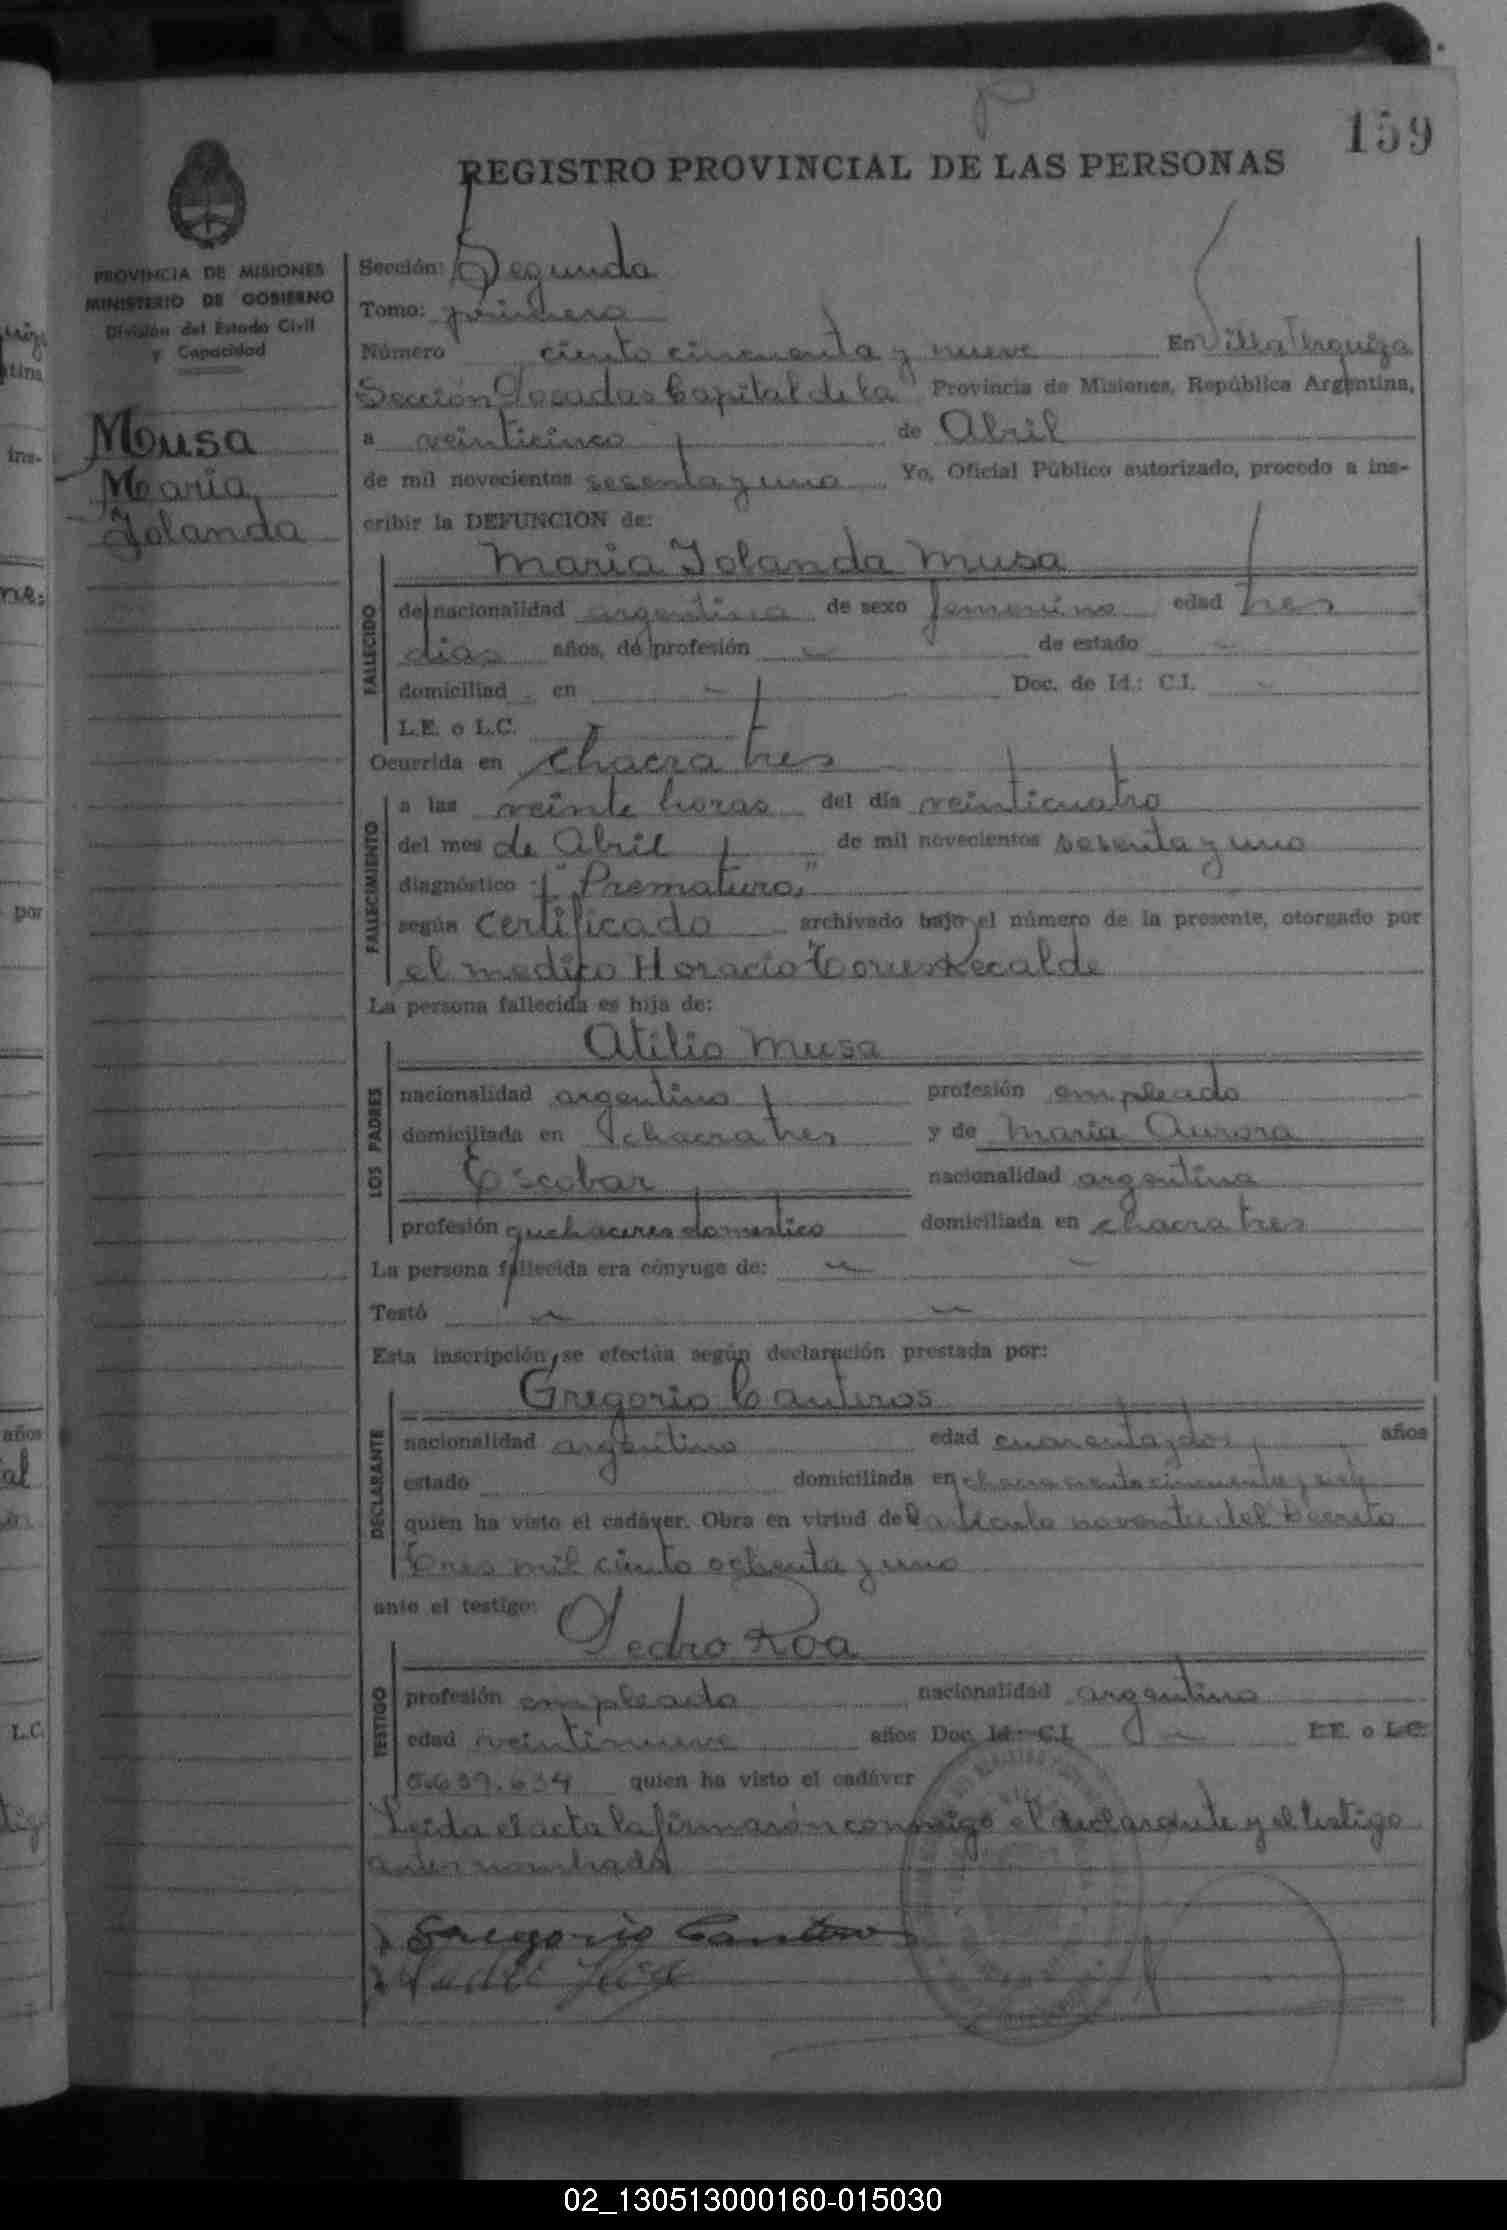 159
REGISTRO PROVINCIAL DE LAS PERSONAS
PROVINCIA DE MISIONES
MINISTERIO DE GOBIERNO
División del Estado Civil
y Capacidad
Musa
Maria
Iolanda
Sección: Segunda
Tomo: primero
Número ciento cincuenta y nueve En Villa Urquiza
Sección Posadas Capital de la Provincia de Misiones, República Argentina,
a veinticinco de Abril
de mil novecientos sesenta y uno Yo, Oficial Público autorizado, procedo a ins-
cribir la DEFUNCION de:
Maria Iolanda Musa
FALLECIDO
de nacionalidad argentina de sexo femenino edad tres
dias años, de profesión de estado
domiciliad en Doc. de Id.: C.I.
L.E. o L.C.
Ocurrida en chacra tres
FALLECIMIENTO
a las veinte horas del día veinticuatro
del mes de Abril de mil novecientos sesenta y uno
diagnóstico "Prematuro,"
según certificado archivado bajo el número de la presente, otorgado por
el medico Horacio Torres Recalde
La persona fallecida es hija de:
Atilio Musa
LOS PADRES
nacionalidad argentino profesión empleado
domiciliada en chacra tres y de Maria Aurora
Escobar nacionalidad argentina
profesión quehaceres domestico domiciliada en chacra tres
La persona fallecida era cónyuge de:
Testó
Esta inscripción se efectúa según declaración prestada por:
Gregorio Canteros
DECLARANTE
nacionalidad argentino edad cuarenta y dos años
estado domiciliada en chacra ciento cincuenta y
quien ha visto el cadáver. Obra en virtud del articulo noventa del Decreto
Tres mil ciento ochenta y uno
ante el testigo:
Pedro Roa
TESTIGO
profesión empleado nacionalidad argentino
edad veintinueve años Doc. Id.: C.I. L.E. o L.C.
5.639.634 quien ha visto el cadáver
Leida el acta la firmaron conmigo el declarante y el testigo
antes nombrado
Gregorio Canteros
02_130513000160-015030